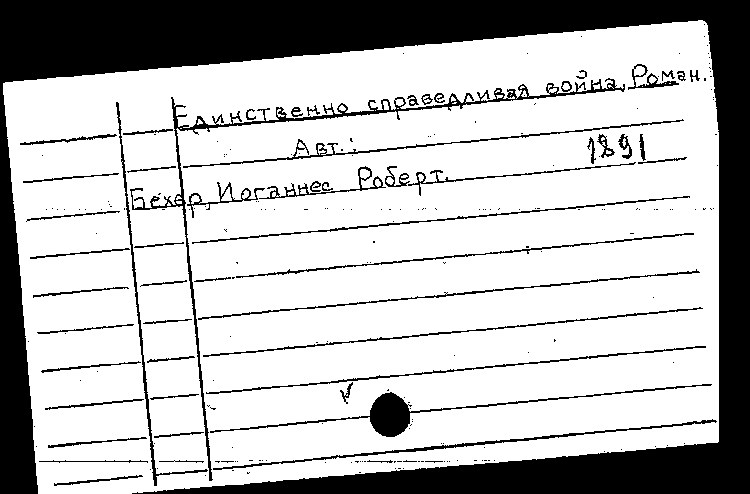 Единственно справедливая война. Роман.
Авт.:
1891
Бехер, Иоганнес Роберт.